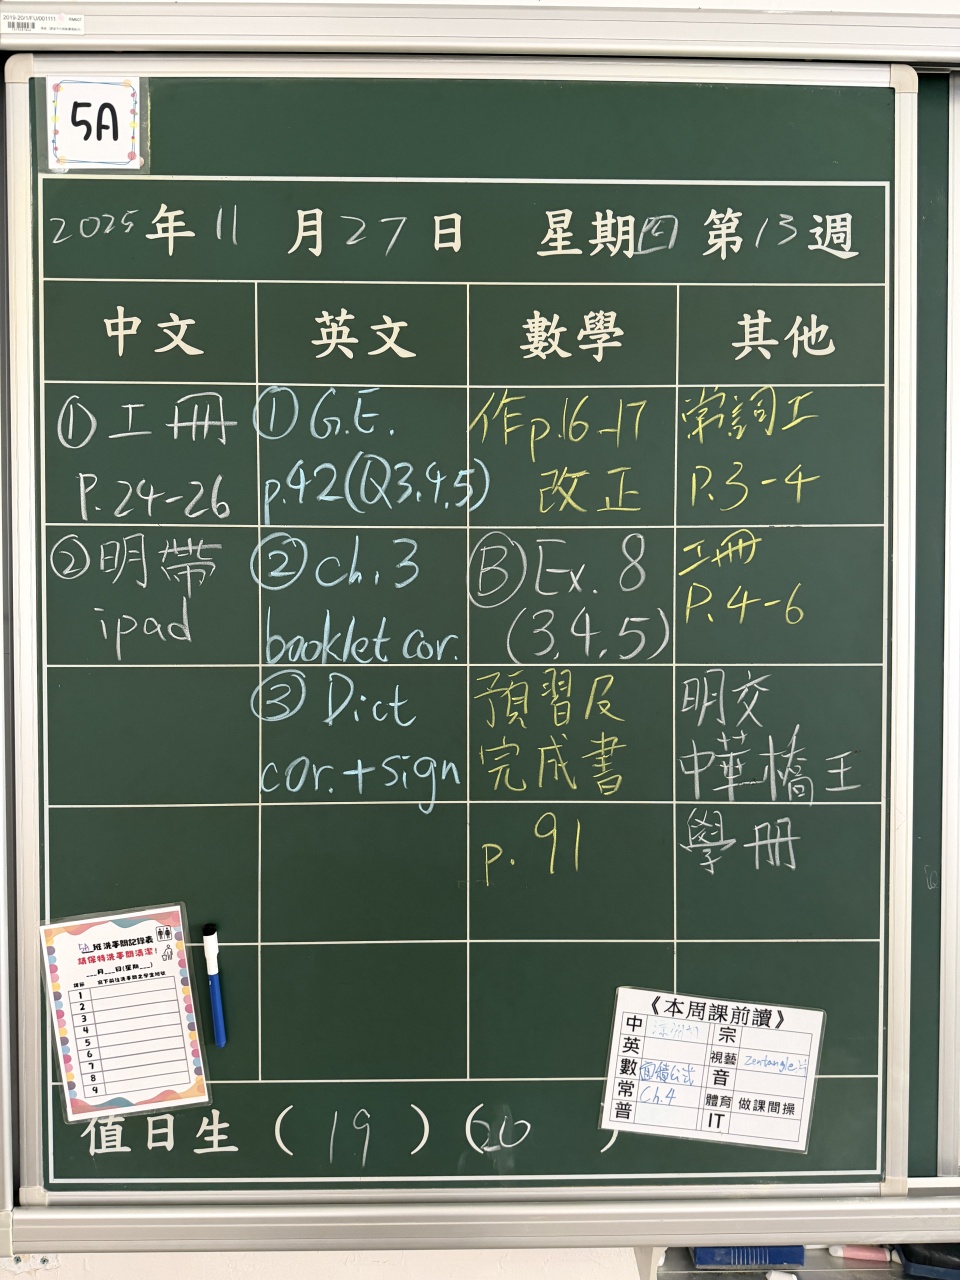 2019-20/1/FU/001111
5A
2025年11月27日 星期四 第13週
中文 英文 數學 其他
①工冊
P.24-26
②明帶
ipad
①G.E.
p.42(Q3,4,5)
②ch.3
booklet cor.
③Dict
cor.+sign
作p.16-17
改正
Ⓑ Ex. 8
(3,4,5)
預習及
完成書
p. 91
常詞工
P.3-4
工冊
P.4-6
明交
中華橋王
學冊
5A班洗手間記錄表
請保持洗手間清潔！
___月___日(星期___)
1
2
3
4
5
6
7
8
9
《本周課前讀》
中
英
數
常 Ch.4
普
宗
視藝 Zentangle
音
體育 做課間操
IT
值日生 (19) (20)